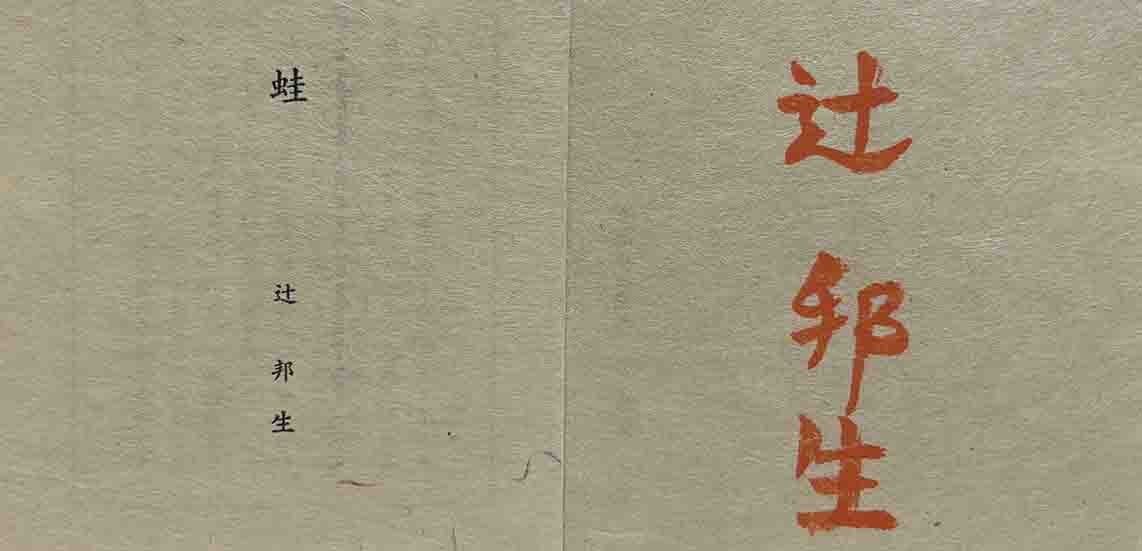 蛙
辻 邦生
辻 邦生